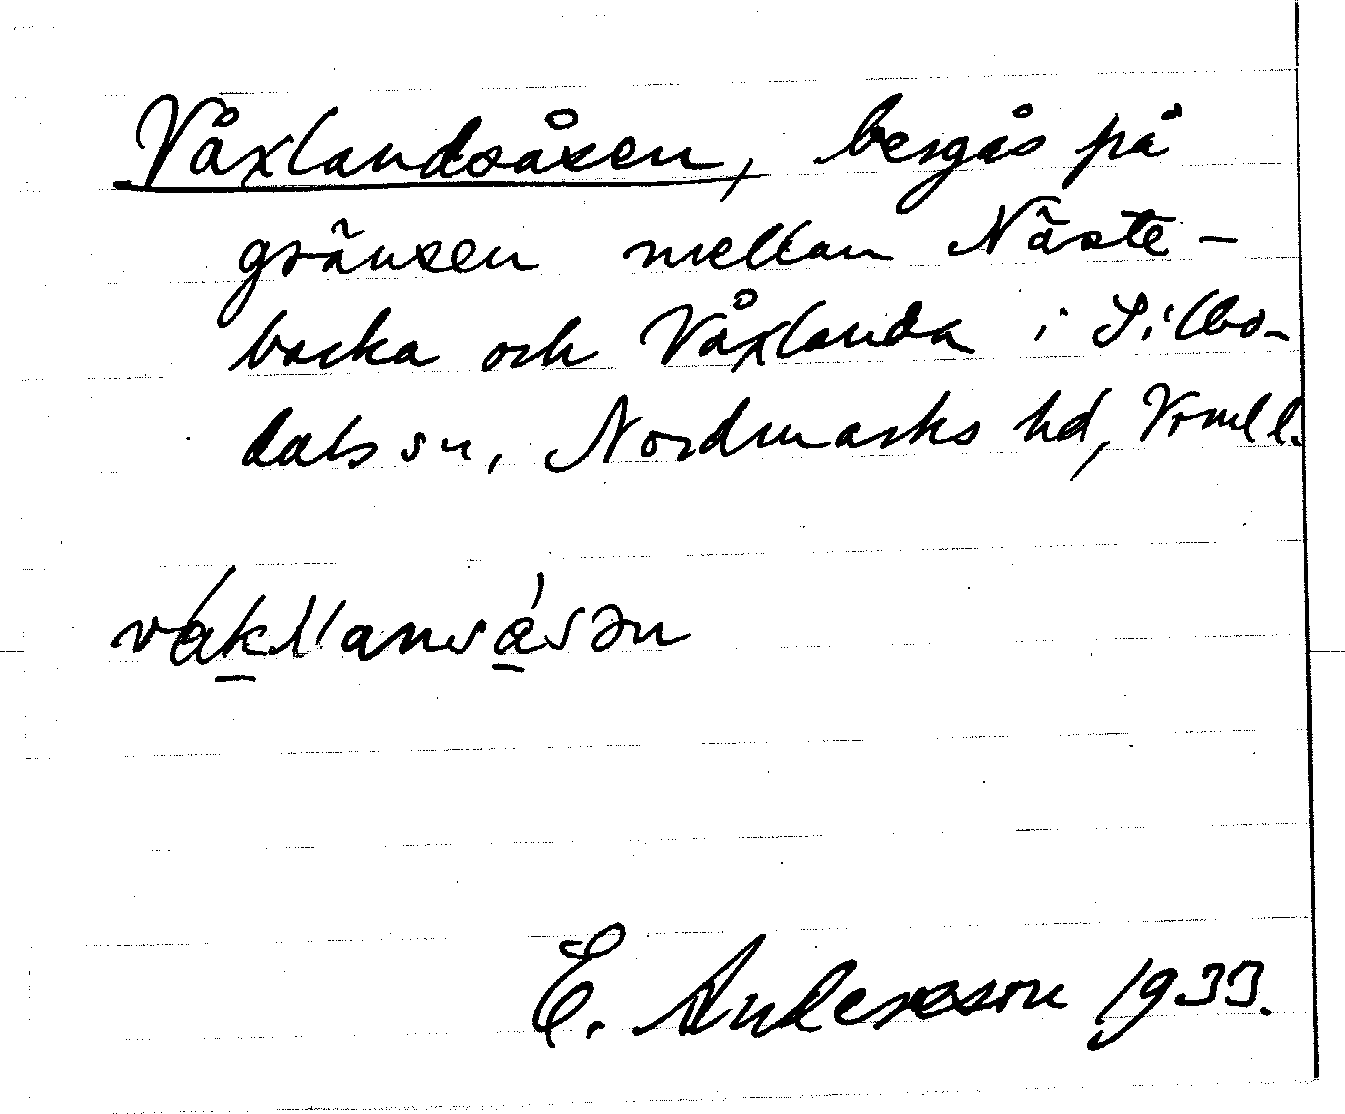 Våxlandsåsen, bergås på
gränsen mellan Näste-
backa och Våxlanda i Silbo-
dals sn, Nordmarks hd, Vrml.
E. Andersson 1933.